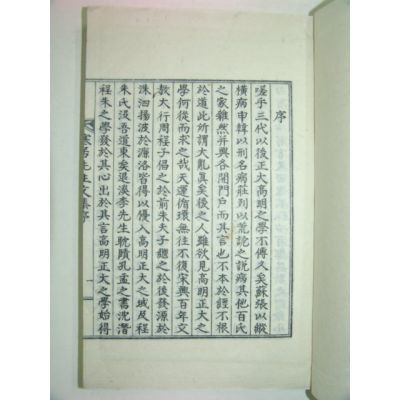 序
嗟乎三代以後正大高明之學不傳久矣蘇張以縱
橫病申韓以刑名病莊列以荒詭之說病其他百氏
之家雖然各開門戶而其言也不本於經不根
於道此所謂大亂眞矣後之人雖欲見高明正大之
學何從而求之哉天運循環無往不復宋興百年文
敎太行周程子倡之於前朱夫子繼之於後發源於
洙泗揚波於濂洛皆得以優入高明正大之域及程
朱氏沒吾道東矣退溪李先生躭賾孔孟之書沈潛
程朱之學發於其心出於其言高明正大之學始得
寒居先生文集序
一